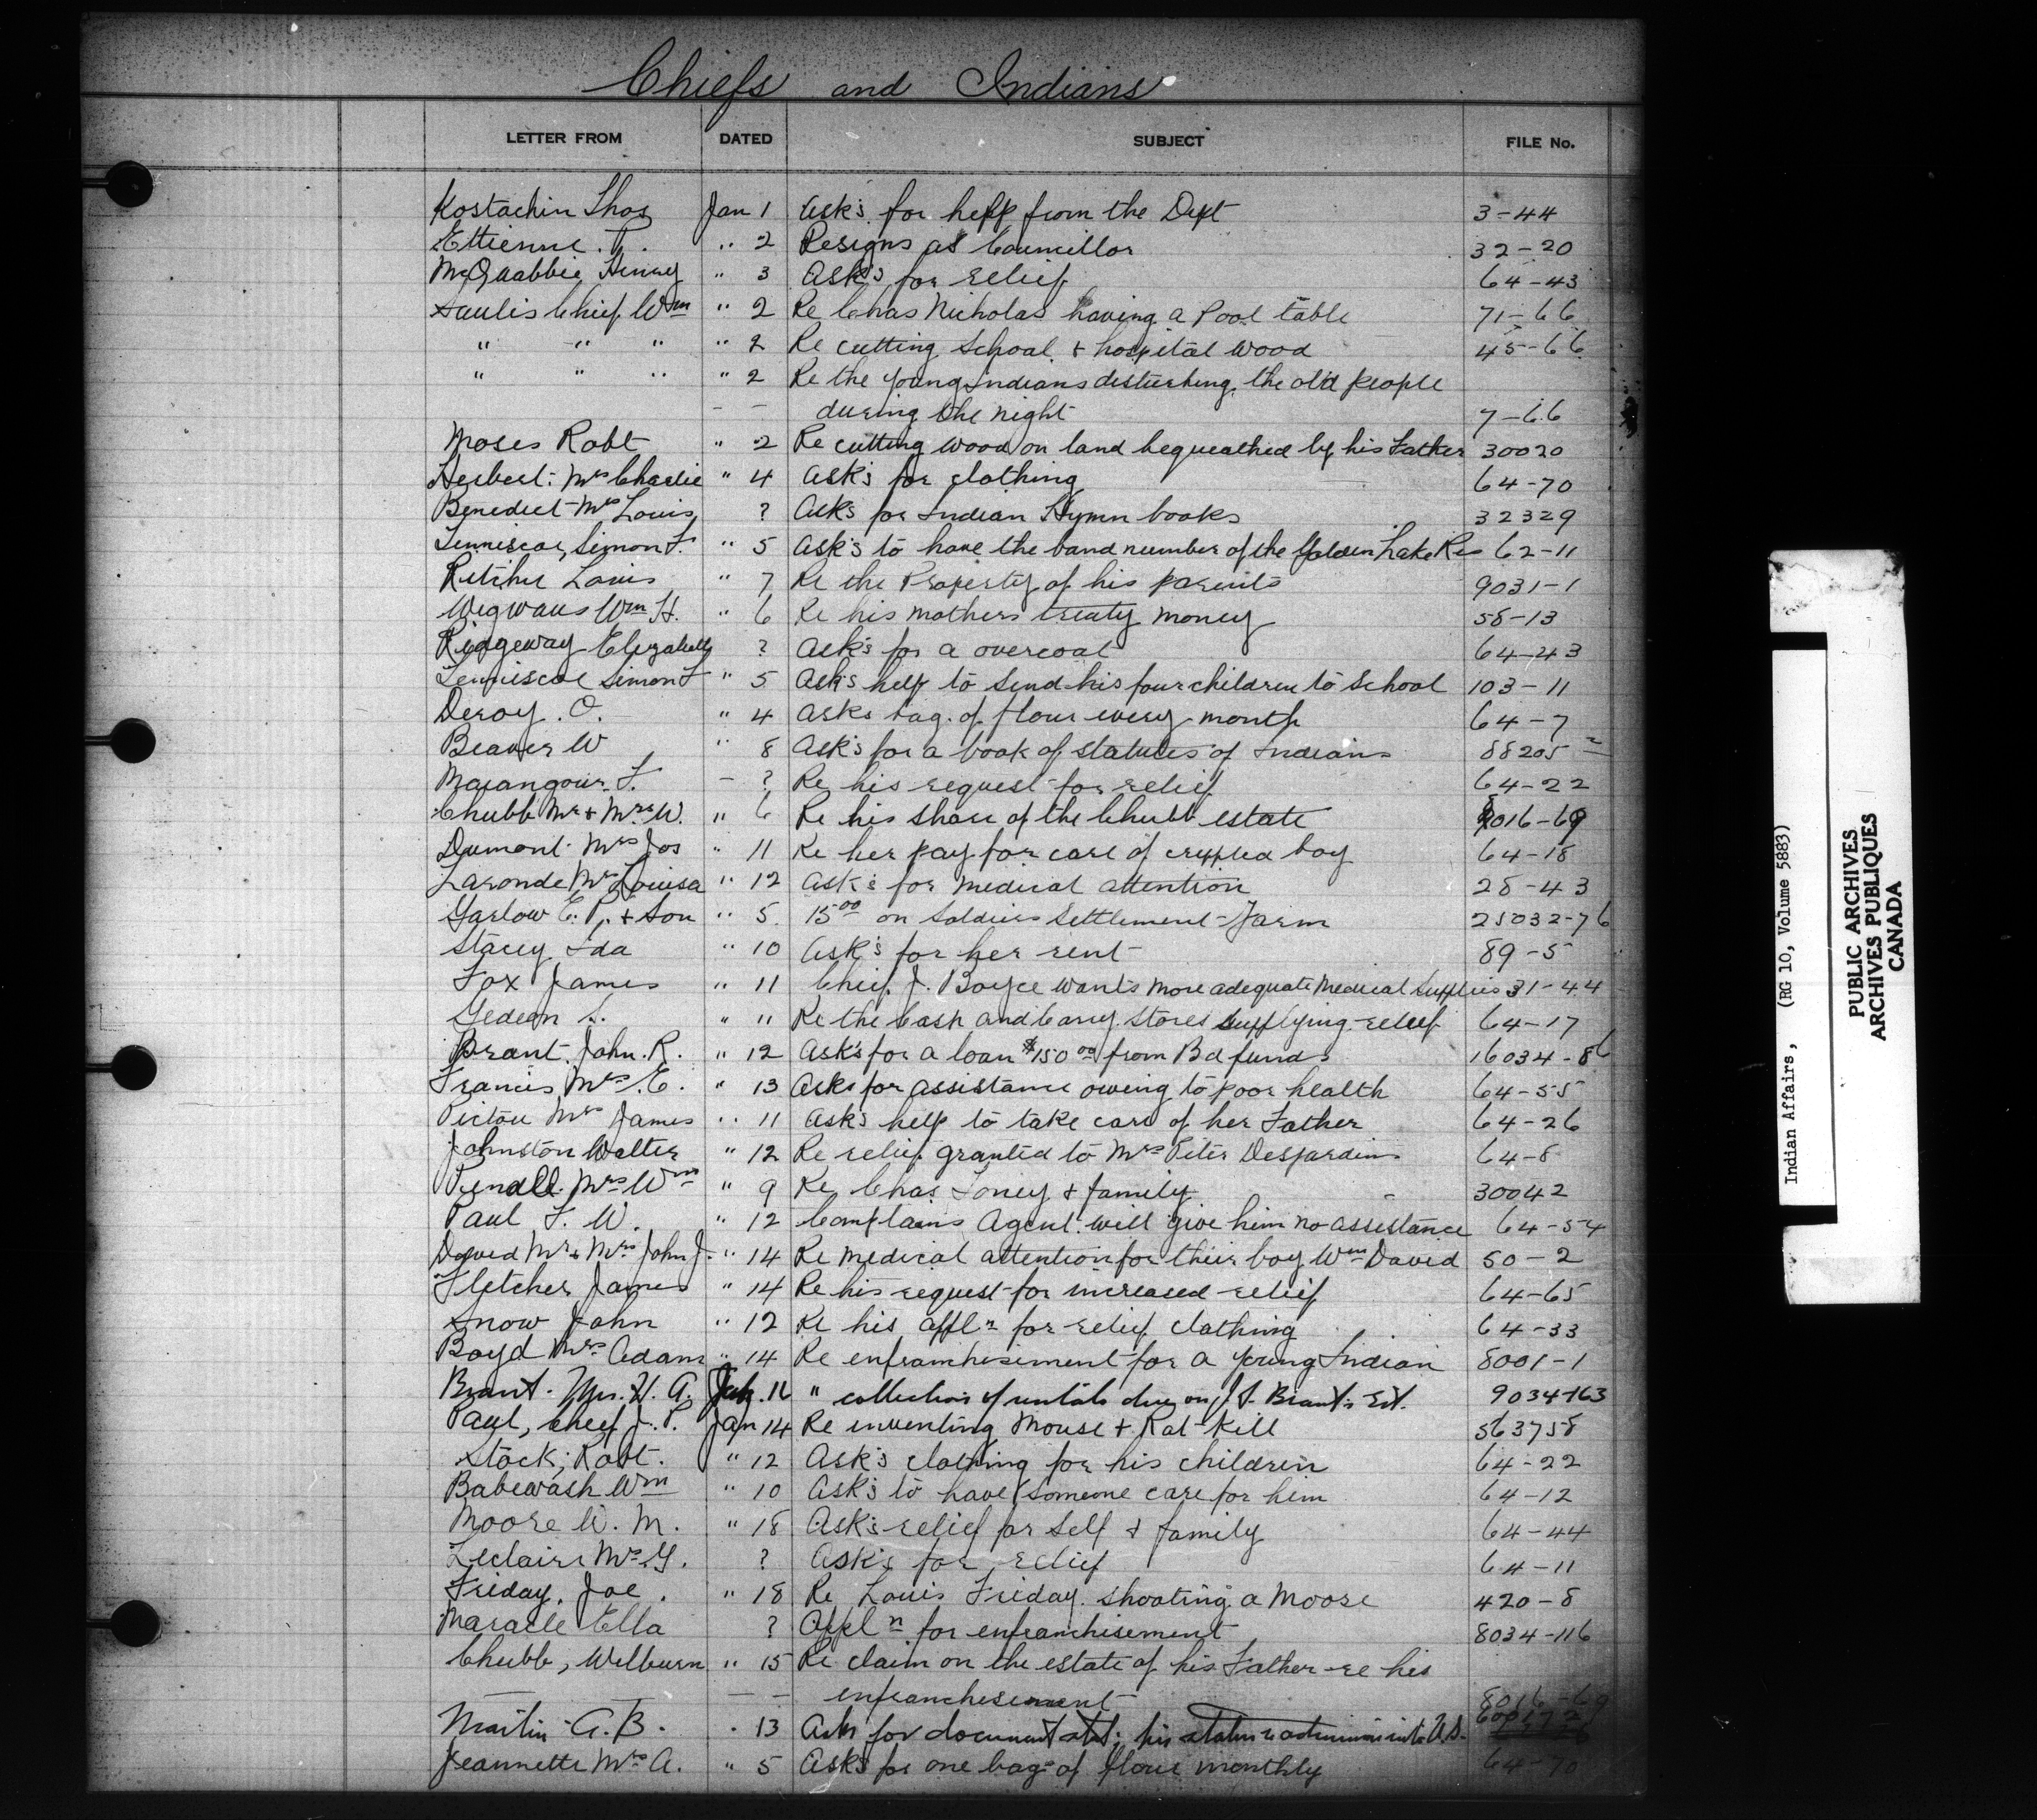 Chiefs and Indians
LETTER FROM DATED SUBJECT FILE No.
Kostachin Thos Jan 1 Ask's for help from the Dept 3-44
Ettienne. P. " 2 Resigns as Councillor 32-20
McQuabbie Henry " 3 Ask's for relief 64-43
Saulis Chief Wm " 2 Re Chas Nicholas having a Pool table 71-66
" " " " 2 Re cutting School & hospital wood 45-66
" " " " 2 Re the young Indians disturbing the old people
during the night 7-66
Moses Robt " 2 Re cutting wood on land bequeathed by his Father 30020
Herbert Mrs Charlie " 4 Ask's for clothing 64-70
Benedict Mrs Louis ? Asks for Indian Hymn books 32329
Tenniscoe, Simon F. " 5 Ask's to have the band number of the Golden Lake Res 62-11
Louis " 7 Re the Property of his parents 9031-1
Wigwaus Wm H. " 6 Re his mothers treaty money 58-13
Ridgeway Elizabeth ? Ask's for a overcoat 64-43
Tenniscoe Simon F " 5 Ask's help to send his four children to School 103-11
Deroy. O. " 4 Asks bag. of flour every month 64-7
Beaver W " 8 Ask's for a book of statutes of Indians 88205-2
F. - ? Re his request for relief 64-22
Chubb Mr & Mrs W. " 6 Re his share of the Chubb estate 8016-69
Dumont Mrs Jos " 11 Re her pay for care of crippled boy 64-18
Laronde Mrs Louisa " 12 Ask's for medical attention 28-43
Garlow E. P. & Son " 5. 15 00 on Soldiers Settlement Farm 25032-76
Stacey Ida " 10 Ask's for her rent 89-5
Fox James " 11 Chief J. Boyce wants more adequate medical supplies 31-44
Gedeon S. " 11 Re the Cash and Carry. stores supplying relief 64-17
Brant. John. R. " 12 Ask's for a loan $150 00 from Bd funds 16034-86
Francis Mrs E. " 13 Asks for assistance owing to poor health 64-55
Pictou Mrs James " 11 Ask's help to take care of her Father 64-26
Johnston Walter " 12 Re relief granted to Mrs Peter Desjardins 64-8
Mrs Wm " 9 Re Chas Toney & family 30042
Paul F. W. " 12 Complains Agent will give him no assistance 64-54
David Mr & Mrs John J. " 14 Re medical attention for their boy Wm David 50-2
Fletcher James " 14 Re his request for increased relief 64-65
Snow John " 12 Re his appln for relief clothing 64-33
Boyd Mrs Adam " 14 Re enfranchisement for a young Indian 8001-1
Brant. Mrs. H. A. 16 " collection of rentals due on J. S. Brant's Est. 9034-163
Paul, Chief J. P. Jan 14 Re inventing Mouse & Rat Kill 563758
Stock, Robt. " 12 Ask's clothing for his children 64-22
Babewash Wm " 10 Ask's to have someone care for him 64-12
Moore W. M. " 18 Ask's relief for self & family 64-44
Leclaire Mrs G. ? Ask's for relief 64-11
Friday. Joe. " 18 Re Louis Friday. shooting a Moose 420-8
Maracle Ella ? Appln for enfranchisement 8034-116
Chubb, Welburn " 15 Re claim on the estate of his Father re his
enfranchisement 8016-69
Martin A. B. . 13 Asks for document stat: his status re admission into U.S.
Jeannette Mrs A. " 5 Ask's for one bag of flour monthly 64-70
Indian Affairs, (RG 10, Volume 5883)
PUBLIC ARCHIVES
ARCHIVES PUBLIQUES
CANADA